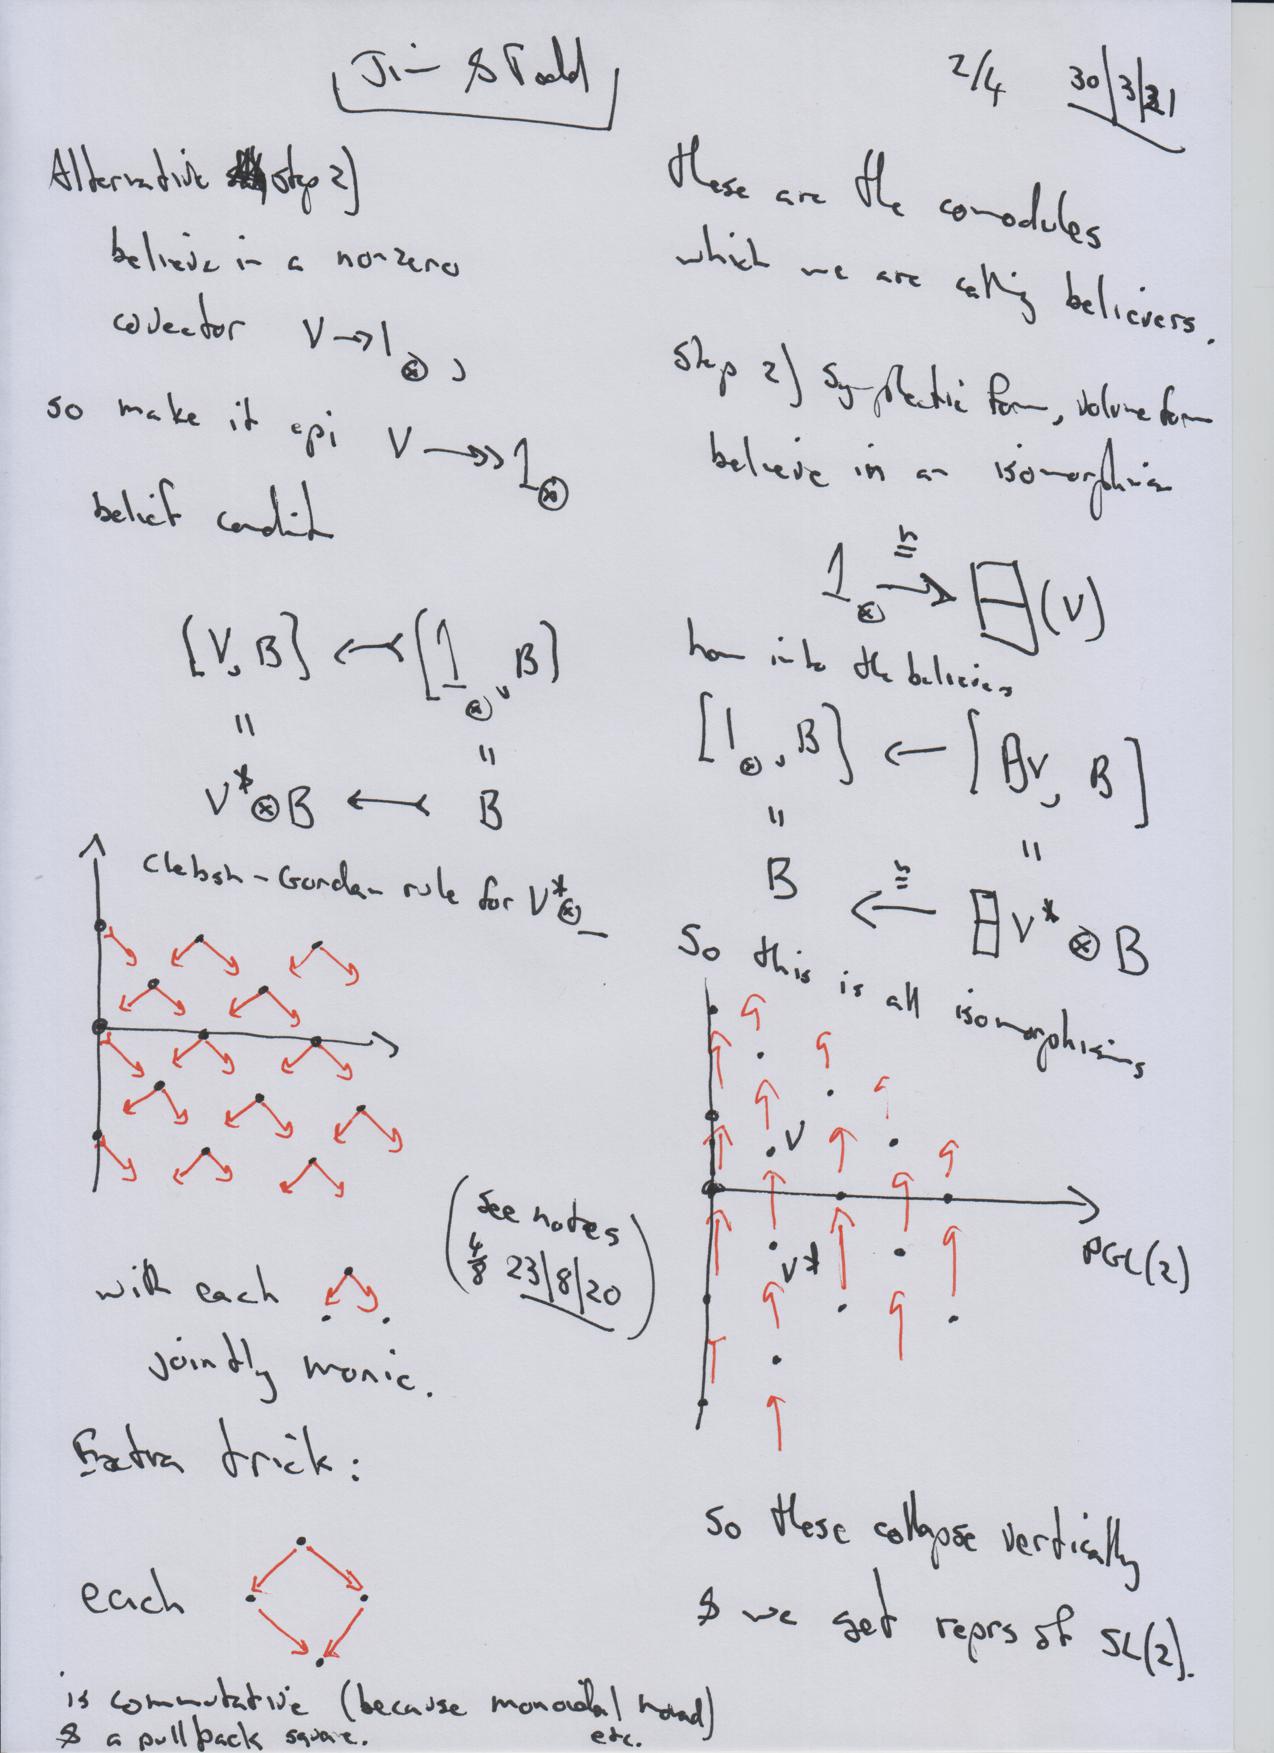 Jim & Todd
2/4 30/3/21
Alternative step 2)
believe in a nonzero
covector V → 1⊗,
so make it epi V ↠ 1⊗
belief condit
[V, B] ↢ [1⊗, B]
= =
V* ⊗ B ↢ B
Clebsh-Gordan rule for V*⊗_
(see notes
4/8 23/8/20)
with each
jointly monic.
Extra trick:
each
is commutative (because monoidal monad)
& a pullback square. etc.
these are the comodules
which we are calling believers.
step 2) symplectic form, volume form
believe in an isomorphism
1⊗ ≅→ 日(V)
hom into the believers
[1⊗, B] ← [日V, B]
= =
B ≅← 日V* ⊗ B
So this is all isomorphisms
V
V*
PGL(2)
so these collapse vertically
& we get reprs of SL(2).